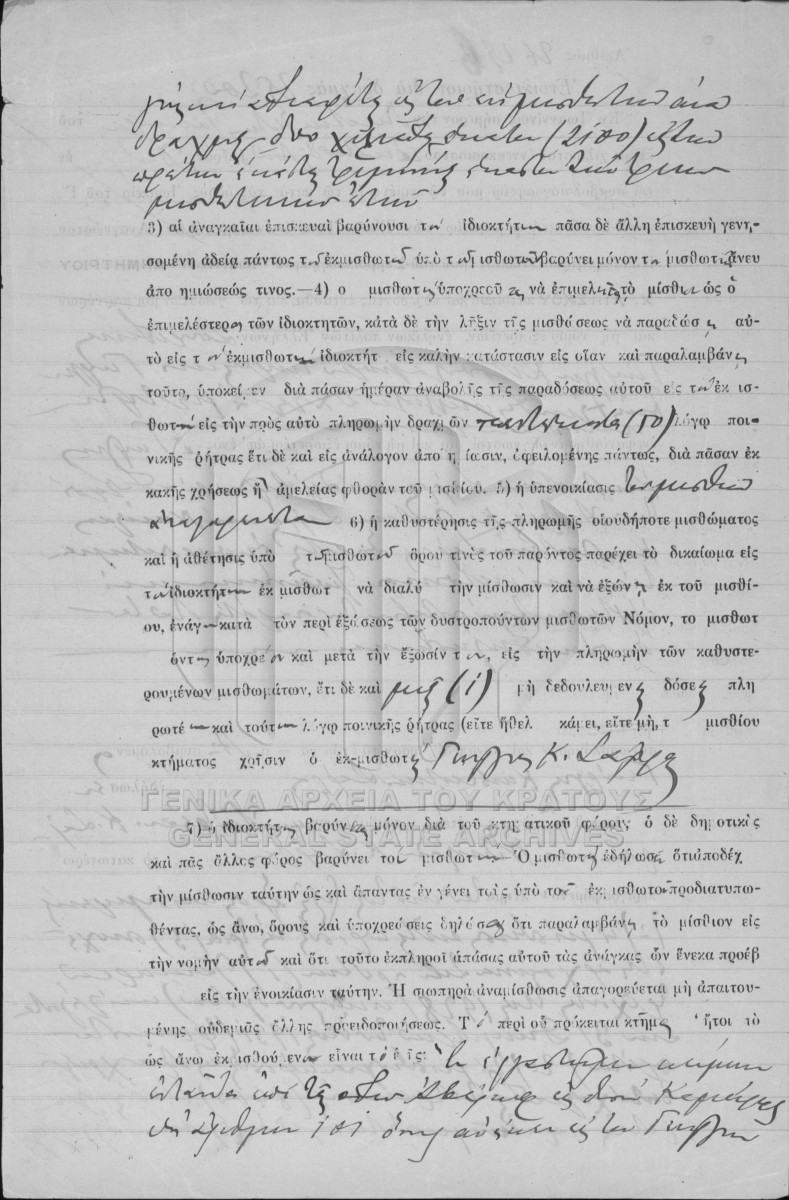 δραχμὰς δύο χιλιάδας ἑκατὸν (2100) εἰς τὴν
3) αἱ ἀναγκαῖαι ἐπισκευαὶ βαρύνουσι τὸν ἰδιοκτήτην πᾶσα δὲ ἄλλη ἐπισκευὴ γενη-
σομένη ἀδείᾳ πάντως τοῦ ἐκμισθωτοῦ ὑπὸ τοῦ μισθωτοῦ βαρύνει μόνον τὸν μισθωτὴν ἄνευ
ἀποζημιώσεώς τινος.—4) ὁ μισθωτὴς ὑποχρεοῦται νὰ ἐπιμελῆται τὸ μίσθιον ὡς ὁ
ἐπιμελέστερος τῶν ἰδιοκτητῶν, κατὰ δὲ τὴν λῆξιν τῆς μισθώσεως νὰ παραδώσῃ αὐ-
τὸ εἰς τὸν ἐκμισθωτὴν ἰδιοκτήτ εἰς καλὴν κατάστασιν εἰς οἵαν καὶ παραλαμβάνει
τοῦτο, ὑποκείμεν διὰ πᾶσαν ἡμέραν ἀναβολῆς τῆς παραδόσεως αὐτοῦ εἰς τὸν ἐκμισ-
θωτὴν εἰς τὴν πρὸς αὐτὸ πληρωμὴν δραχμῶν πεντήκοντα (50) λόγῳ ποι-
νικῆς ῥήτρας ἔτι δὲ καὶ εἰς ἀνάλογον ἀποζημίωσιν, ὀφειλομένης πάντως, διὰ πᾶσαν ἐκ
κακῆς χρήσεως ἢ ἀμελείας φθορὰν τοῦ μισθίου. 5) ἡ ὑπενοικίασις τοῦ μισθίου
ἀπαγορεύεται 6) ἡ καθυστέρησις τῆς πληρωμῆς οἱουδήποτε μισθώματος
καὶ ἡ ἀθέτησις ὑπὸ τοῦ μισθωτοῦ ὅρου τινὸς τοῦ παρόντος παρέχει τὸ δικαίωμα εἰς
τὸν ἰδιοκτήτην ἐκμισθωτ νὰ διαλύ τὴν μίσθωσιν καὶ νὰ ἐξώνῃ ἐκ τοῦ μισθί-
ου, ἐνάγων κατὰ τὸν περὶ ἐξώσεως τῶν δυστροπούντων μισθωτῶν Νόμον, το μισθωτ
ὄντος ὑποχρέου καὶ μετὰ τὴν ἔξωσίν του, εἰς τὴν πληρωμὴν τῶν καθυστε-
ρουμένων μισθωμάτων, ἔτι δὲ καὶ μιᾶς (1) μὴ δεδουλευμένης δόσεως πλη
ρωτέας καὶ ταύτης λόγῳ ποινικῆς ῥήτρας (εἴτε ἤθελ κάμει, εἴτε μή, τ μισθίου
κτήματος χρῆσιν ὁ ἐκμισθωτὴς Γεώργιος Κ.
ΓΕΝΙΚΑ ΑΡΧΕΙΑ ΤΟΥ ΚΡΑΤΟΥΣ
GENERAL STATE ARCHIVES
7) ὁ ἰδιοκτήτης βαρύνεται μόνον διὰ τοῦ κτηματικοῦ φόρου, ὁ δὲ δημοτικὸς
καὶ πᾶς ἄλλος φόρος βαρύνει τὸν μισθωτὴν Ὁ μισθωτὴς ἐδήλωσε ὅτι ἀποδέχ
τὴν μίσθωσιν ταύτην ὡς καὶ ἅπαντας ἐν γένει τοὺς ὑπὸ τοῦ ἐκμισθωτοῦ προδιατυπω-
θέντας, ὡς ἄνω, ὅρους καὶ ὑποχρεώσεις δηλώσας ὅτι παραλαμβάνει τὸ μίσθιον εἰς
τὴν νομὴν αὐτοῦ καὶ ὅτι τοῦτο ἐκπληροῖ ἁπάσας αὐτοῦ τὰς ἀνάγκας ὧν ἕνεκα προέβ
εἰς τὴν ἐνοικίασιν ταύτην. Ἡ σιωπηρὰ ἀναμίσθωσις ἀπαγορεύεται μὴ ἀπαιτου-
μένης οὐδεμιᾶς ἄλλης προειδοποιήσεως. Τὸ περὶ οὗ πρόκειται κτῆμα ἤτοι τὸ
ὡς ἄνω ἐκμισθούμενον εἶναι τὸ ἑξῆς: Ἓν ἐργαστήριον κείμενον
ἀριθμὸν 101 εἰς τὸν Γεώργιον